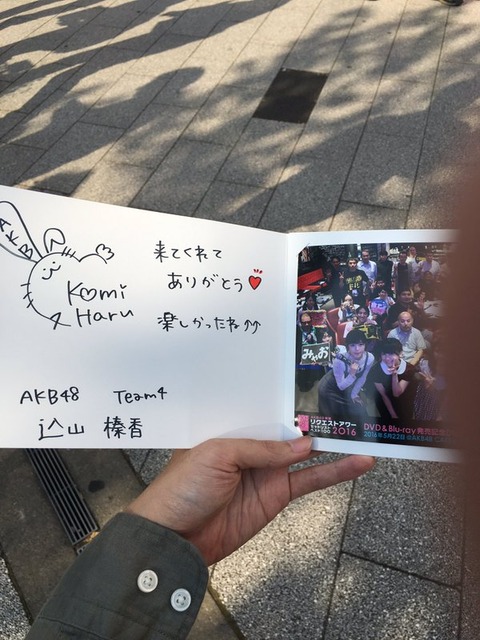 AKB
Komi
Haru
来てくれて
ありがとう
楽しかったね
AKB48 Team4
込山 榛香
みゃお
リクエストアワー
2016
DVD&Blu-ray発売記念
2016年5月22日 @AKB48 CA